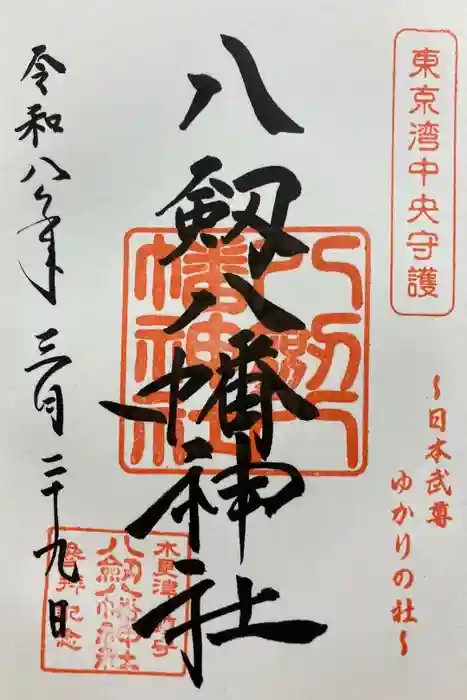 東京湾中央守護
〜日本武尊
ゆかりの社〜
八剱八幡神社
八剱八幡神社
令和八年三月二十九日
木更津
八剱八幡神社
参拝記念